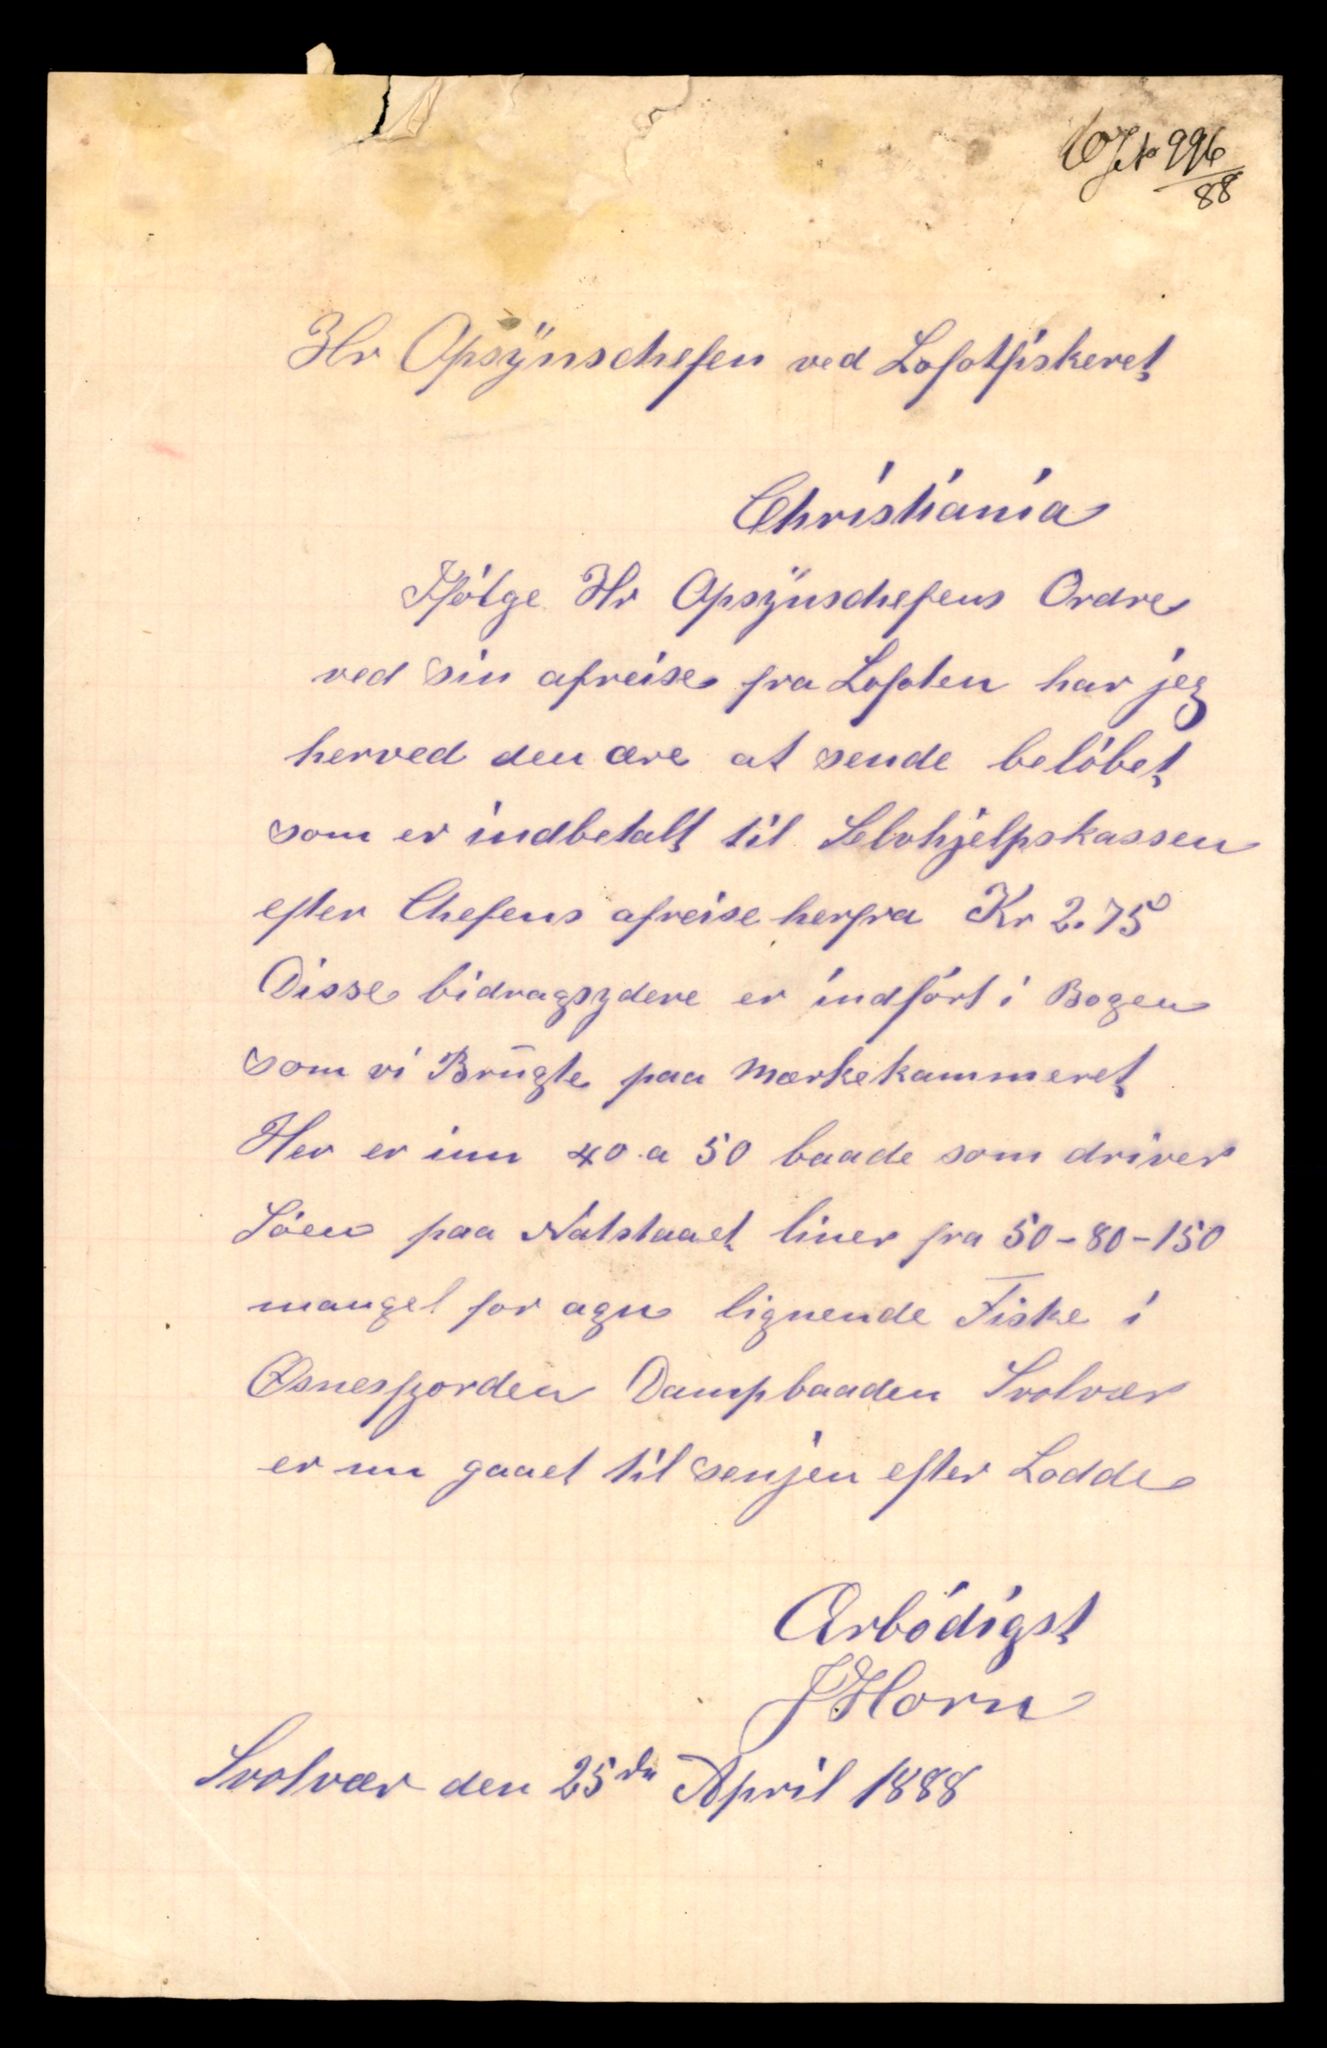 No 996
88
Hr Opsÿnschefen ved Lofotfiskeret
Christiania
Ifólge Hr Opsÿnschefens Ordre
ved sin afreise fra Lofoten har jeg
herved den ære at sende belóbet
som er indbetalt til Selvhjelpskassen
efter Chefens afreise herfra Kr 2.75
Disse bidragsydere er indfórt i Bogen
som vi Brugte paa Mærkekammeret
Her er inu 40 a 50 baade som driver
Sóen paa Natstaaet liner fra 50-80-150
mangel for agn lignende Fiske i
Østnesfjorden Dampbaaden Svolvær
er nu gaaet til senjen efter Lodde
Ærbódigst
J Horn
Svolvær den 25de April 1888